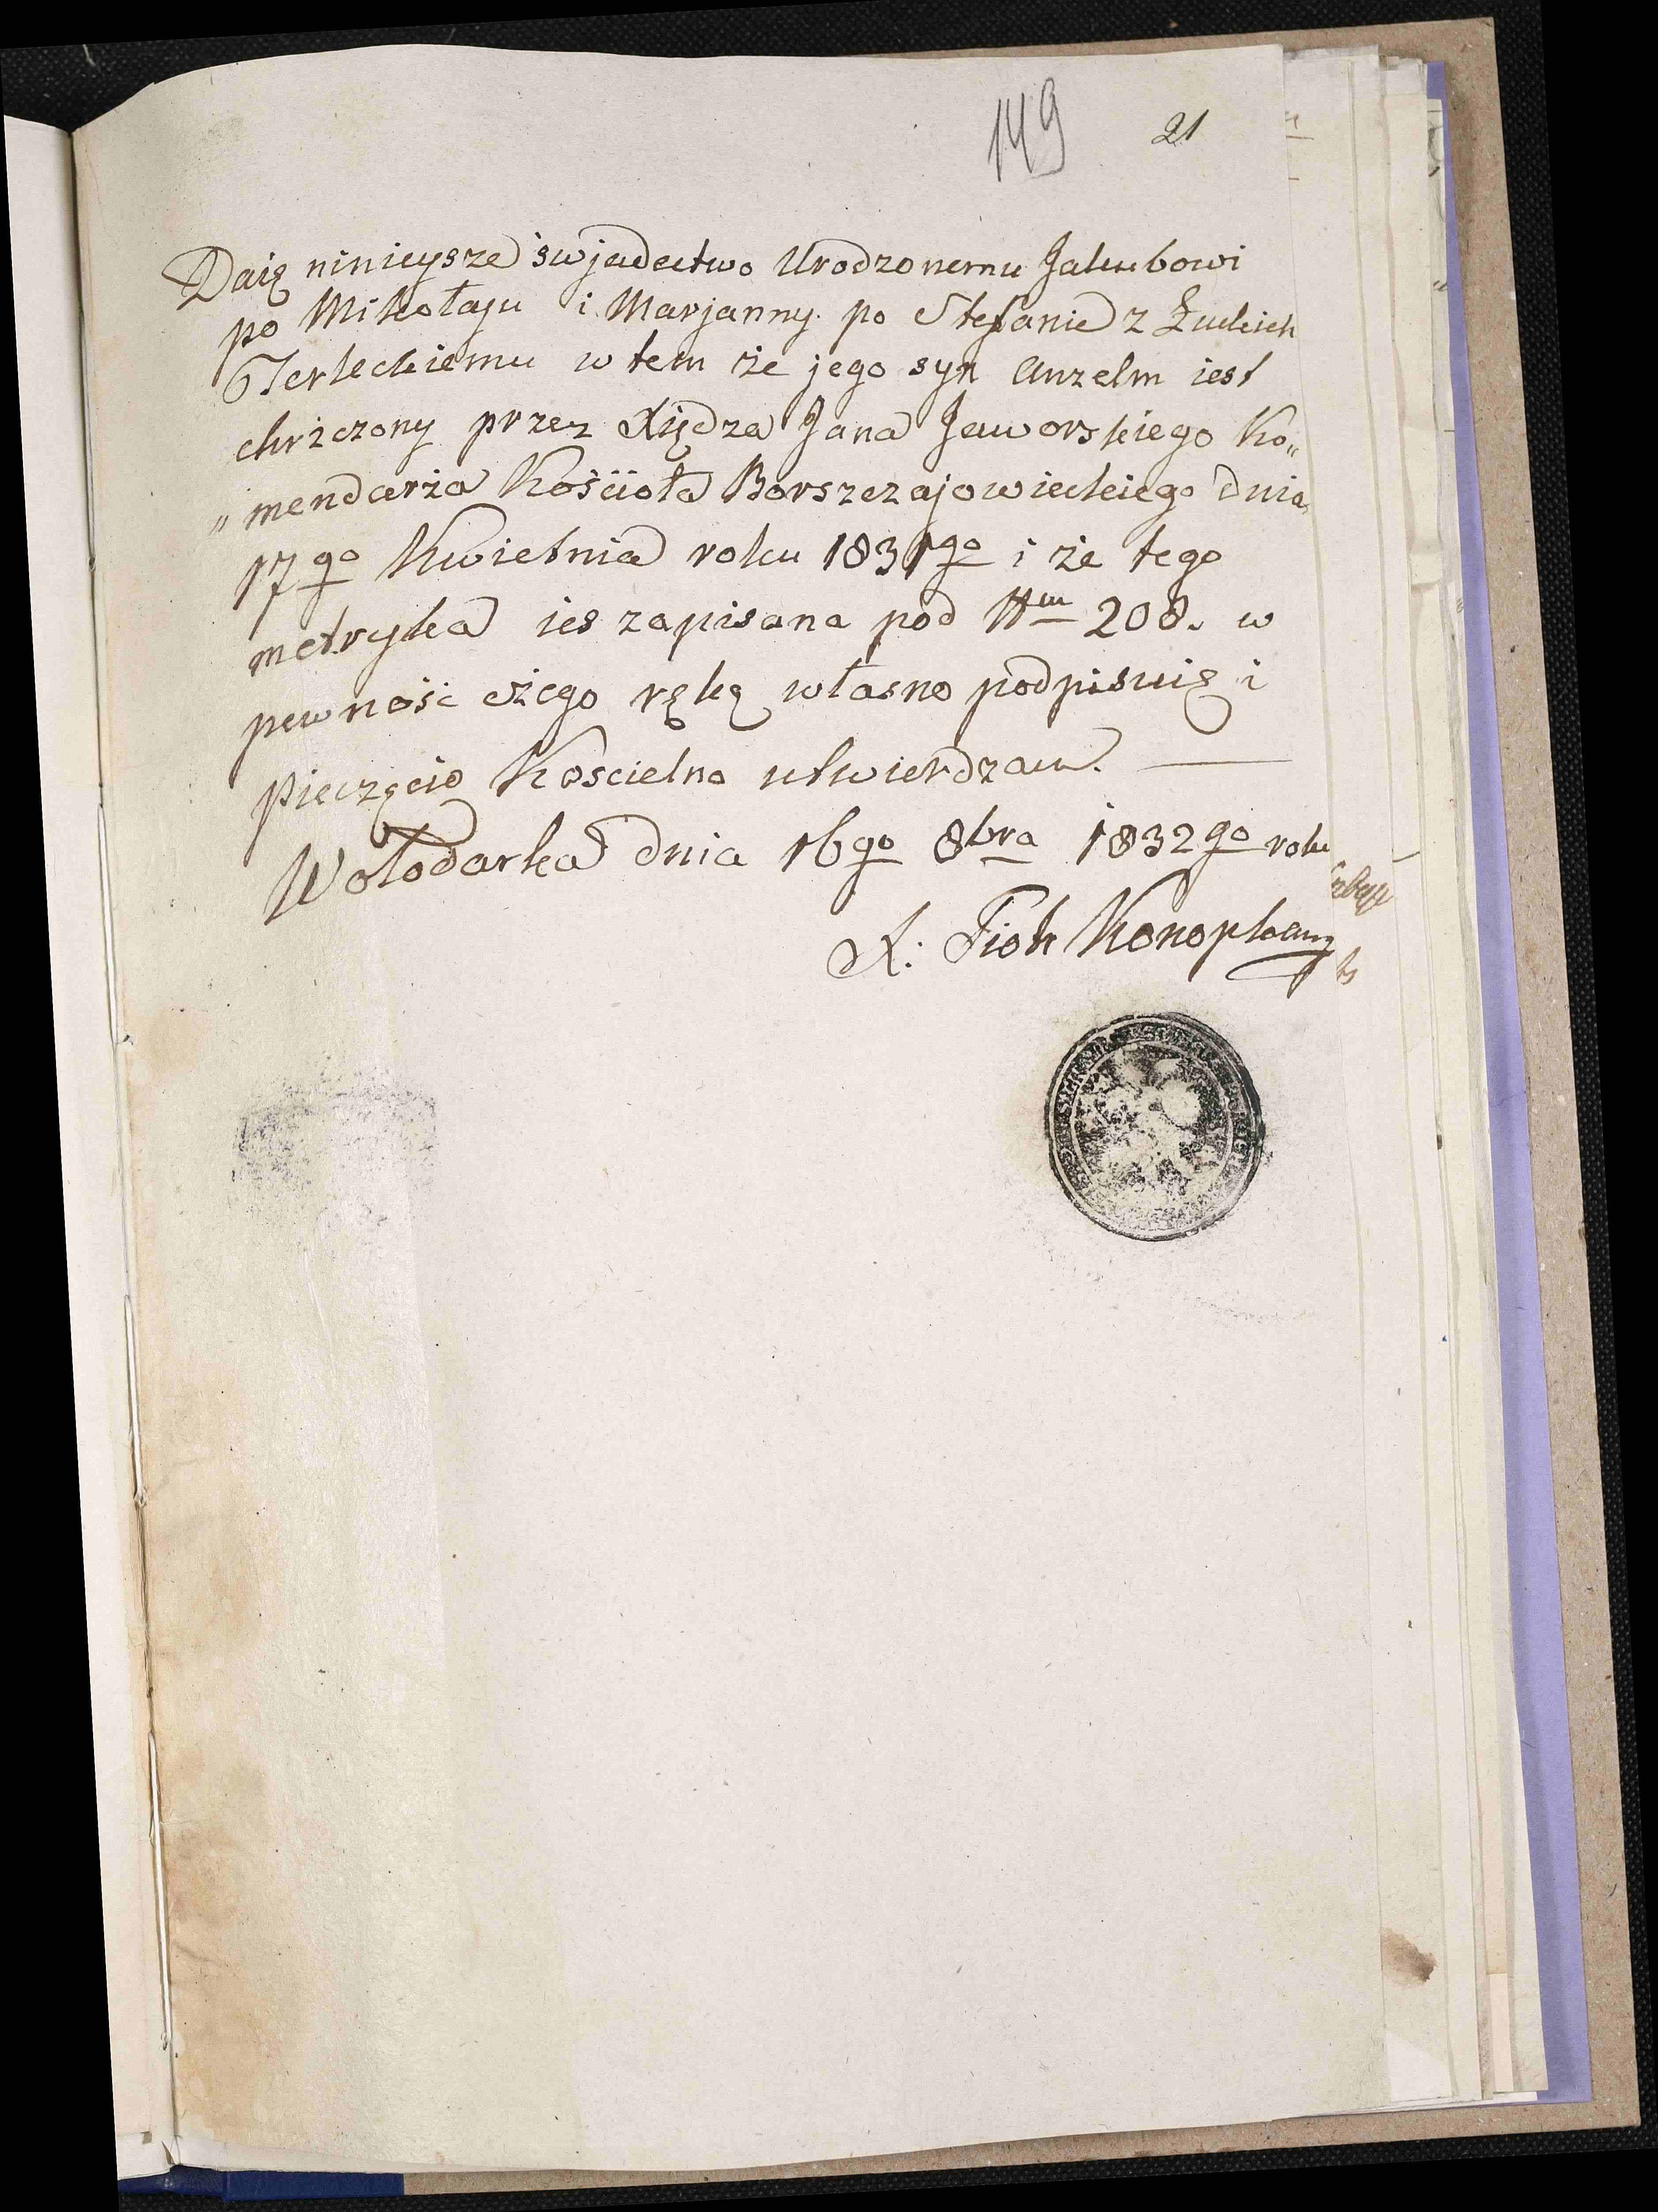 149 21
Daię ninieysze świadectwo Urodzonemu Jakubowi
po Mikołaju i Marjanny po Stefanie z Żuckich
Terleckiemu w tem że jego syn Anzelm iest
chrzczony przez Xiędza Jana Jaworskiego Ko„
„mendarża Kościoła Borszczajowieckiego dnia
17go Kwietnia roku 1831go i że tego
metryka ies zapisana pod Nm 208. w
pewność czego rękę własno podpisuię i
pieczęcio Koscielno utwierdzam.
Wołodarka dnia 16go 8bra 1832go roku
X: Piotr